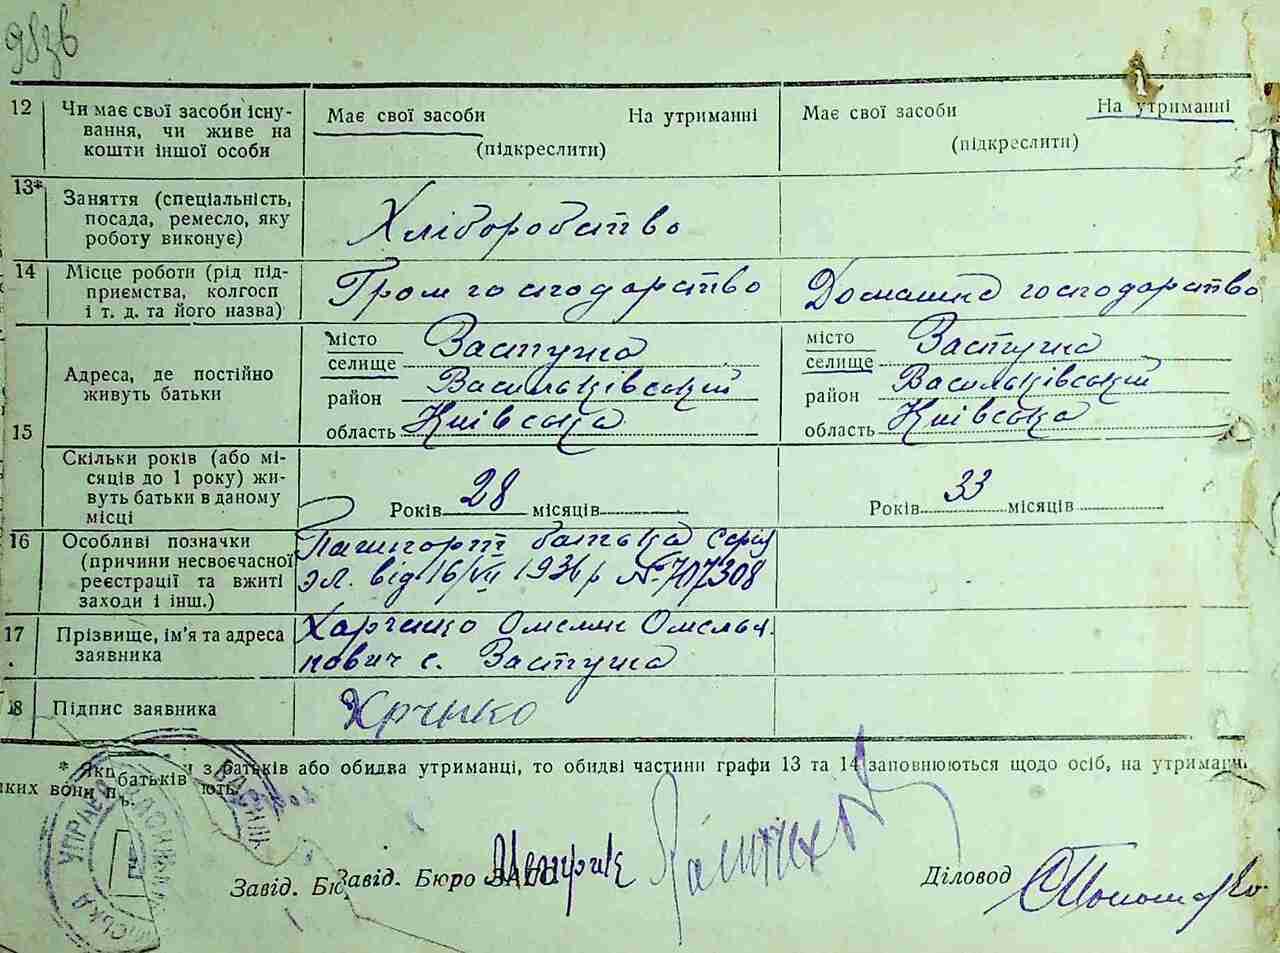 983в
12 Чи має свої засоби існу-
вання, чи живе на
кошти іншої особи
Має свої засоби На утриманні
(підкреслити)
Має свої засоби На утриманні
(підкреслити)
13* Заняття (спеціальність,
посада, ремесло, яку
роботу виконує)
Хліборобство
14 Місце роботи (рід під-
приємства, колгосп
і т. д. та його назва)
Гром господарство
Домашнє господарство
15
Адреса, де постійно
живуть батьки
місто
селище Застугна
район Васильківський
область Київська
місто
селище Застугна
район Васильківський
область Київська
Скільки років (або мі-
сяців до 1 року) жи-
вуть батьки в даному
місці
Років 28 місяців
Років 33 місяців
16 Особливі позначки
(причини несвоєчасної
реєстрації та вжиті
заходи і інш.)
Пашпорт батька серія
від 16/VII 193 р № 707308
17 Прізвище, ім'я та адреса
заявника
Харченко Омелян Омелья-
нович с. Застугна
18 Підпис заявника
Хрченко
* Якщо з батьків або обидва утриманці, то обидві частини графи 13 та 14 заповнюються щодо осіб, на утриманні
яких вони
батьків
ють.
УПРАВ
ВАСИЛЬ
СЬКА
Завід. Бю
Завід. Бюро ЗАГС
Діловод